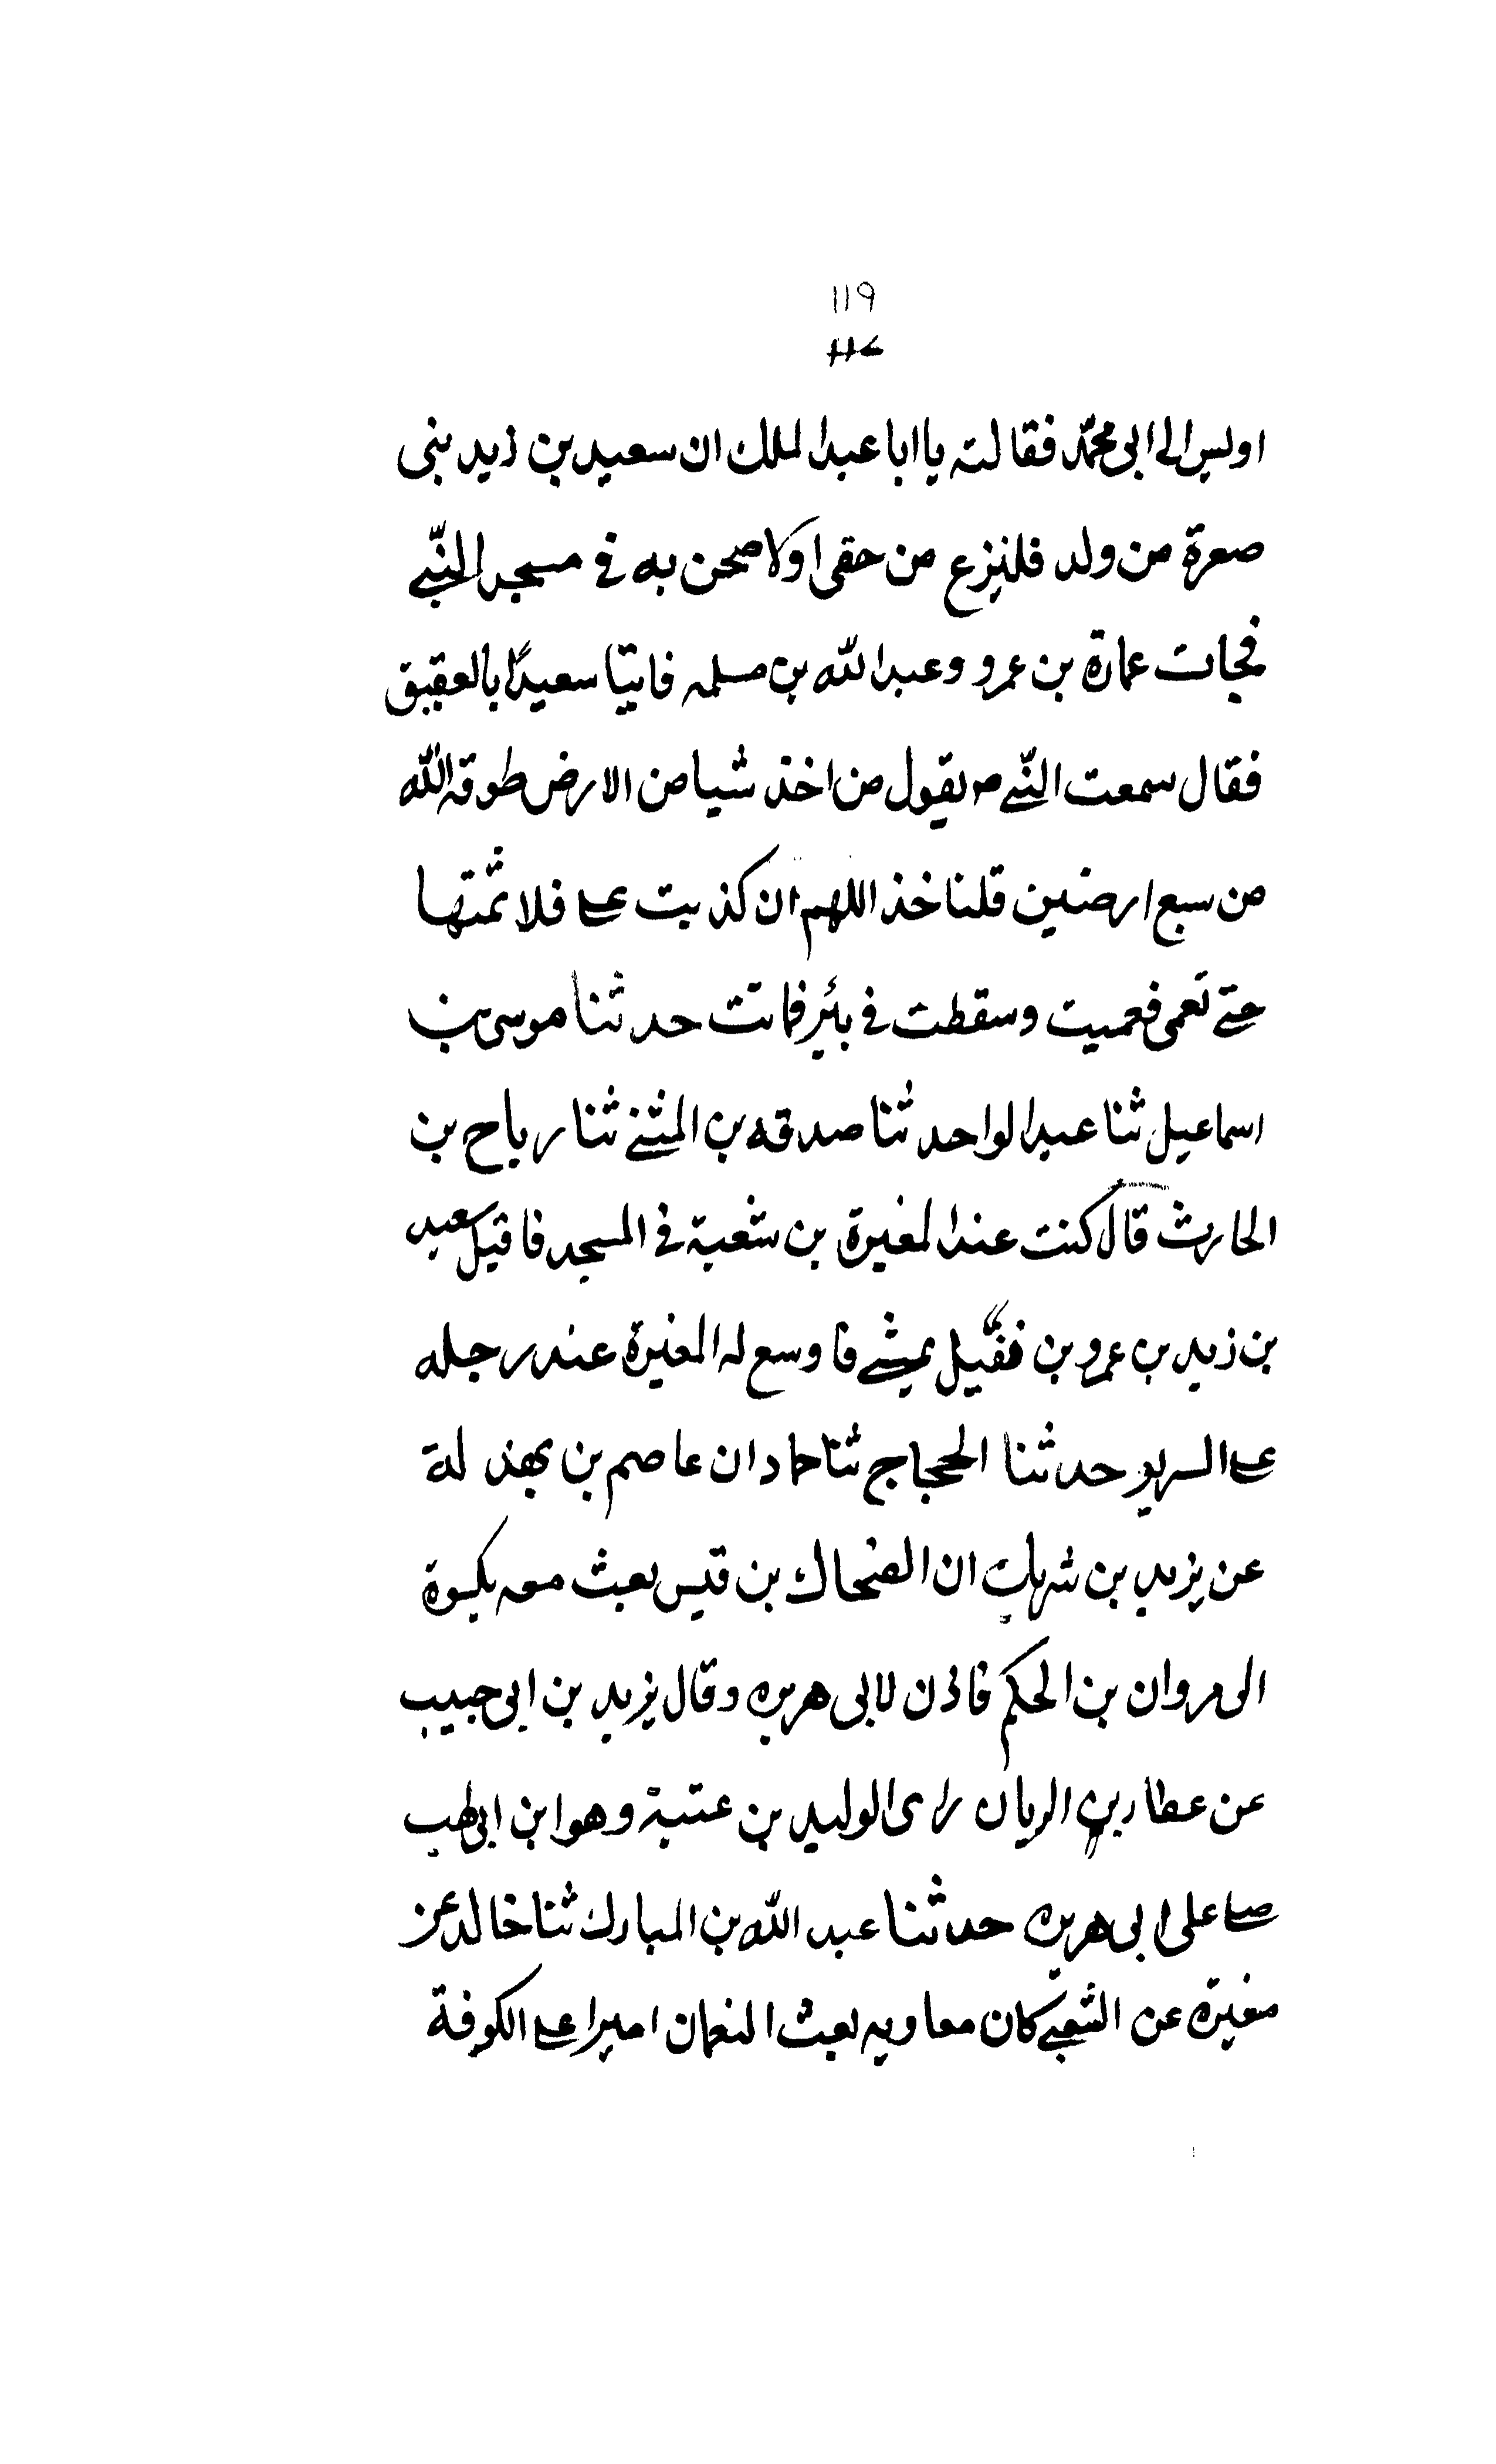 ١١٩
اويس الى ابى محمّد فقالته يا ابا عبد الملك ان سعيد بن زيد بنى
صعرة من ولد فلينزع من حقى اولا صحن به فى مسجد النبّى
فجات عمارة بن عمرو وعبد الله بن مسلمه فاتيا سعيدًا بالعقيق
فقال سمعت النبّى صـ يقول من اخذ شيا من الارض طوقه الله
من سبع ارضين قلنا خذ اللهم ان كذبت على فلا تمتها
حتى تعمى فعميت وسقطت فى بئر فماتت حدثنا موسى بن
اسماعيل ثنا عبد الواحد ثنا صدقه بن المثنى ثنا رياح بن
الحارث قال كنت عند المغيرة بن شعبة فى المسجد فاقبل سعيد
بن زيد بن عمرو بن نفيل يمشى فاوسع له المغيرة عند رجله
على السرير حدثنا الحجاج ثنا حماد ان عاصم بن بهدلة
عن يزيد بن شهاب ان الضحاك بن قيس بعث معه بكسوة
الى مروان بن الحكم فاذن لابى هريره وقال يزيد بن ابى حبيب
عن عطا بن الريان راى الوليد بن عتبة وهو ابن ابى لهب
صلى على ابى هريره حدثنا عبد الله بن المبارك ثنا خالد عن
مغيره عن الشعبى كان معاويه بعث النعمان اميرا على الكوفة